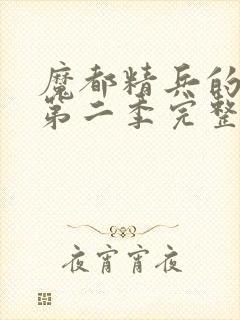 魔都精兵的
第二季完整
夜宵宵夜